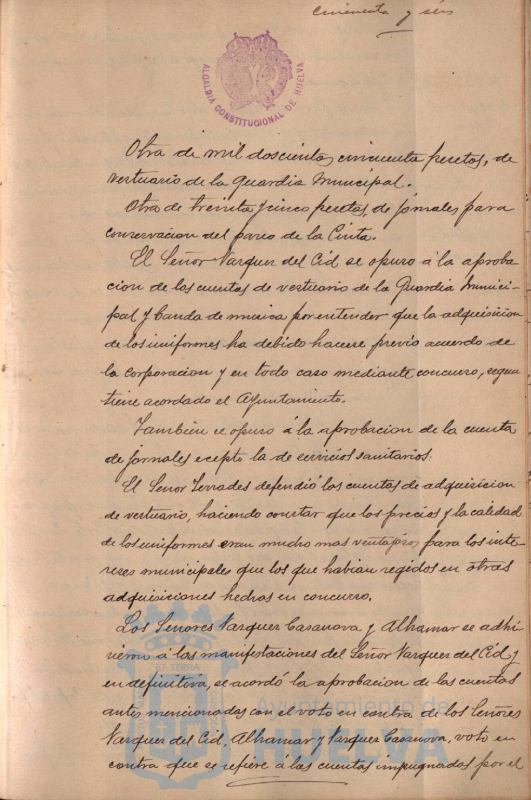 cincuenta y seis
ALCALDIA CONSTITUCIONAL DE HUELVA
Otra de mil doscientas cincuenta pesetas, de
vestuario de la Guardia Municipal.
Otra de treinta y cinco pesetas, de jornales para
conservacion del paseo de la Cinta.
El Señor Vazquez del Cid se opuso á la aproba
cion de las cuentas de vestuario de la Guardia Munici-
pal y banda de musica por entender que la adquisicion
de los uniformes ha debido hacerse previo acuerdo de
la corporacion y en todo caso mediante concurso, segun
tiene acordado el Ayuntamiento.
Tambien se opuso á la aprobacion de la cuenta
de jornales ecepto la de servicios sanitarios.
El Señor Terrades defendió las cuentas de adquisicion
de vestuario, haciendo constar que los precios y la calidad
de los uniformes eran mucho mas ventajosos para los inte-
reses municipales que los que habian regidos en otras
adquisiciones hechas en concurso.
Los Señores Vazquez Casanova y Alhamar se adhi-
rieron á las manifestaciones del Señor Vazquez del Cid y
en definitiva, se acordó la aprobacion de las cuentas
antes mencionadas con el voto en contra de los Señores
Vazquez del Cid, Alhamar y Vazquez Casanova, voto en
contra que se refiere á las cuentas impugnadas por el
Ayuntamiento de
HUELVA